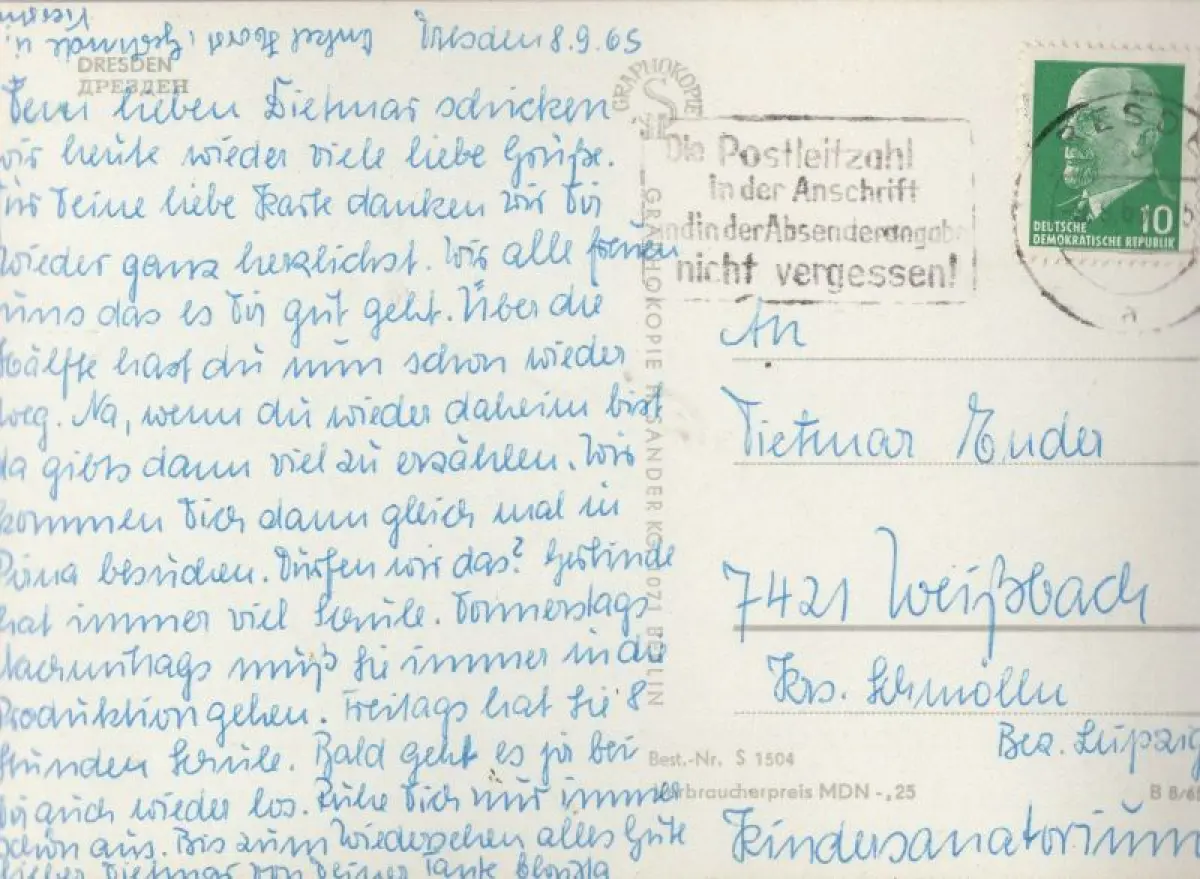 Onkel Horst, Gerlinde u.
Dresden 8.9.65
DRESDEN
ДРЕЗДЕН
Dem lieben Dietmar schicken
wir heute wieder viele liebe Grüße.
Für Deine liebe Karte danken wir Dir
wieder ganz herzlichst. Wir alle freuen
uns das es Dir gut geht. Über die
Hälfte hast du nun schon wieder
weg. Na, wenn du wieder daheim bist
da gibts dann viel zu erzählen. Wir
kommen Dich dann gleich mal in
Pirna besuchen. Dürfen wir das? Gerlinde
hat immer viel Schule. Donnerstags
Nachmittags muß Sie immer in die
Produktion gehen. Freitags hat Sie 8
Stunden Schule. Bald geht es ja bei
Dir auch wieder los. Ruhe Dich nur immer
schön aus. Bis zum Wiedersehen alles Gute
lieber Dietmar von Deiner Tante
GRAPHOKOPIE
GRAPHOKOPIE H. SANDER KG 1071 BERLIN
Die Postleitzahl
in der Anschrift
und in der Absenderangabe
nicht vergessen!
10
DEUTSCHE
DEMOKRATISCHE REPUBLIK
a
An
Dietmar Ender
7421 Weißbach
Krs. Schmölln
Bez. Leipzig
Best.-Nr. S 1504
Verbraucherpreis MDN -,25
B 8/65
Kindersanatorium